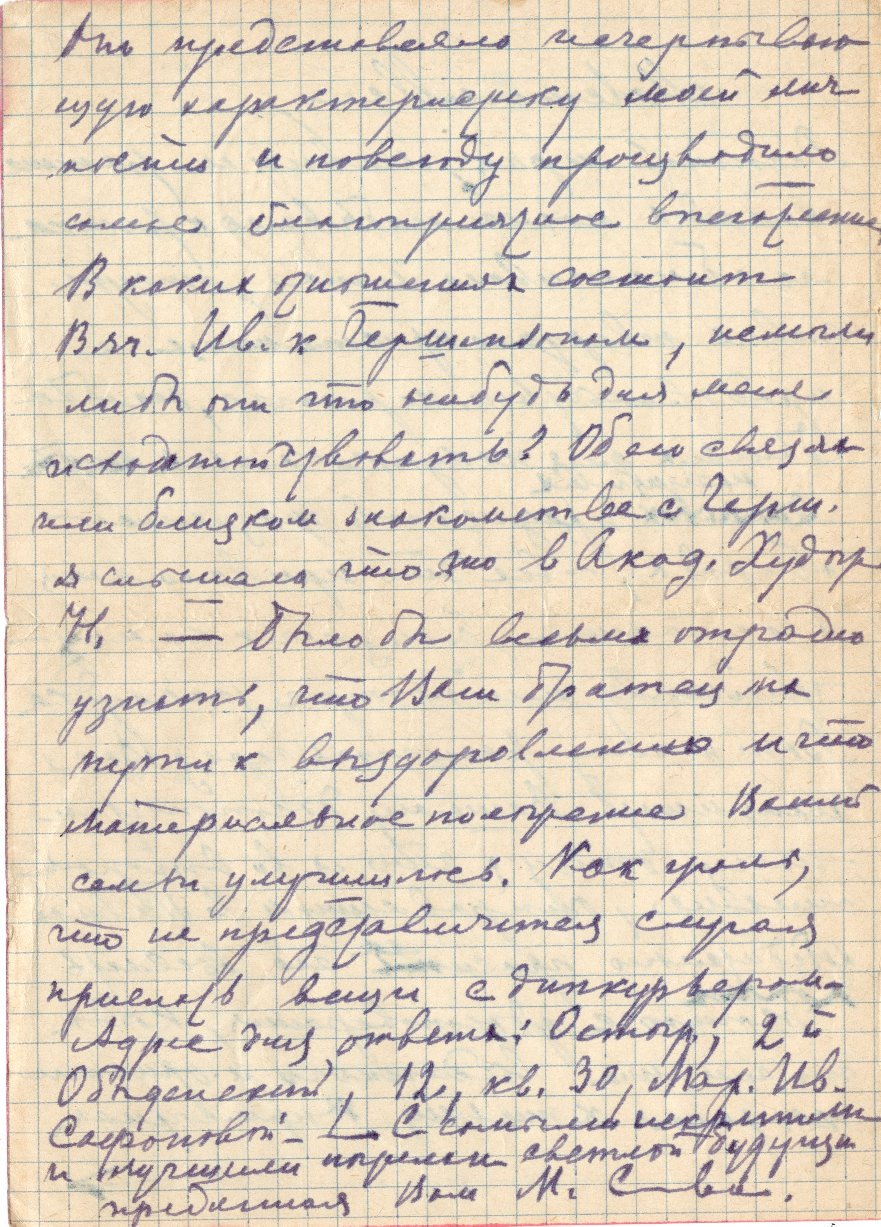 Оно представляло исчерпываю
щую характеристику моей лич
ности и повсюду производило
самое благоприятное впечатление
В каких отношениях состоит
Вяч. Ив. к Гершензонам, не могли
ли бы они что нибудь для меня
исходатайствовать? Об его связях
или близком знакомстве с Герш.
я слышала что то в Акад. Худ
Н. — Было бы весьма отрадно
узнать, что Ваш братец на
пути к выздоровлению и что
материальное положение Вашей
семьи улучшилось. Как жаль,
что не представляется случая
прислать вещи с дипкурьером.
Адрес для ответа: Остож., 2й
Обыденский, 12, кв. 30, Мар. Ив.
Сафоновой — С самыми искренними
и лучшими светлой будущ
преданная Вам М. С